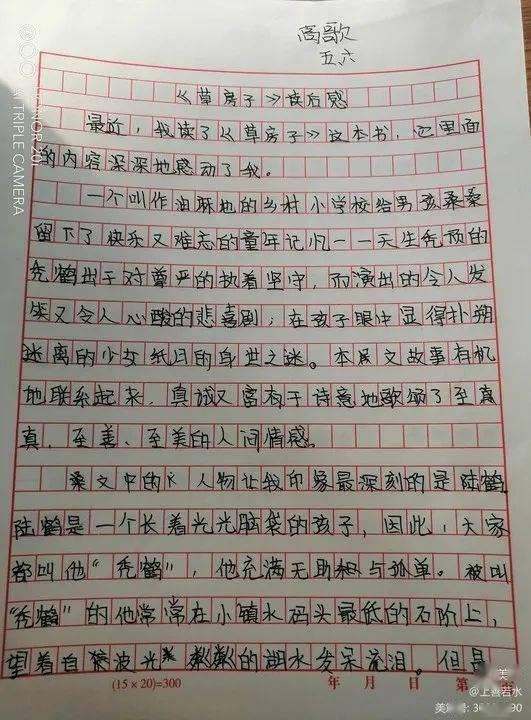 商歌
五六
《草房子》读后感
最近，我读了《草房子》这本书，它里面
的内容深深地感动了我。
一个叫作油麻地的乡村小学校给男孩桑桑
留下了快乐又难忘的童年记忆——天生秃顶的
秃鹤出于对尊严的执着坚守，而演出的令人发
笑又令人心酸的悲喜剧；在孩子眼中显得扑朔
迷离的少女纸月的身世之谜。本文故事有机
地联系起来，真诚又富有于诗意地歌颂了至真
真、至善、至美的人间情感。
文中的人物让我印象最深刻的是陆鹤
陆鹤是一个长着光光脑袋的孩子，因此，大家
都叫他"秃鹤"，他充满无助和与孤单。被叫
"秃鹤"的他常常在小镇水码头最低的石阶上，
望着自波光粼粼的湖水发呆流泪。但是
(15×20)=300
年 月 日 第
HONOR 20i
AI TRIPLE CAMERA
@上善若水